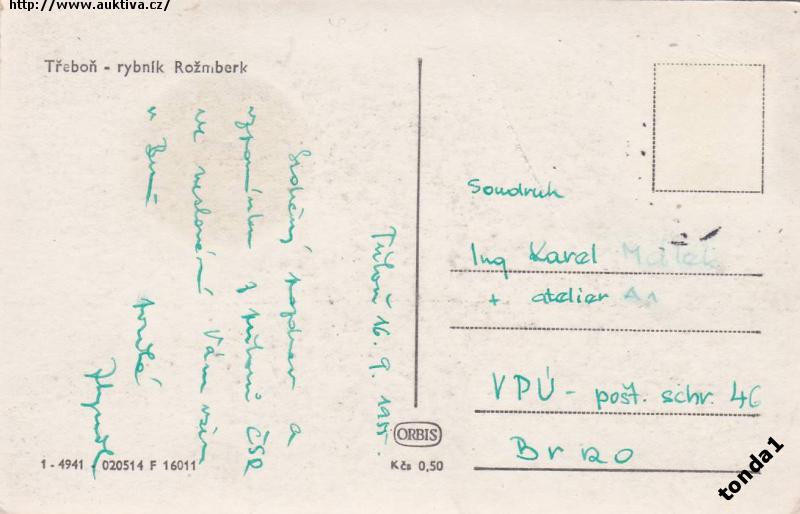 http://www.auktiva.cz/
Třeboň - rybník Rožmberk
Srdečný pozdrav a
vzpomínku z ČSR
ve Vám
v Brně
Třeboň 16. 9. 1955.
Soudruh
Ing Karel Málek
+ atelier A1
VPÚ - pošt. schr. 46
Brno
ORBIS
Kčs 0,50
1 - 4941 - 020514 F 16011
tonda1